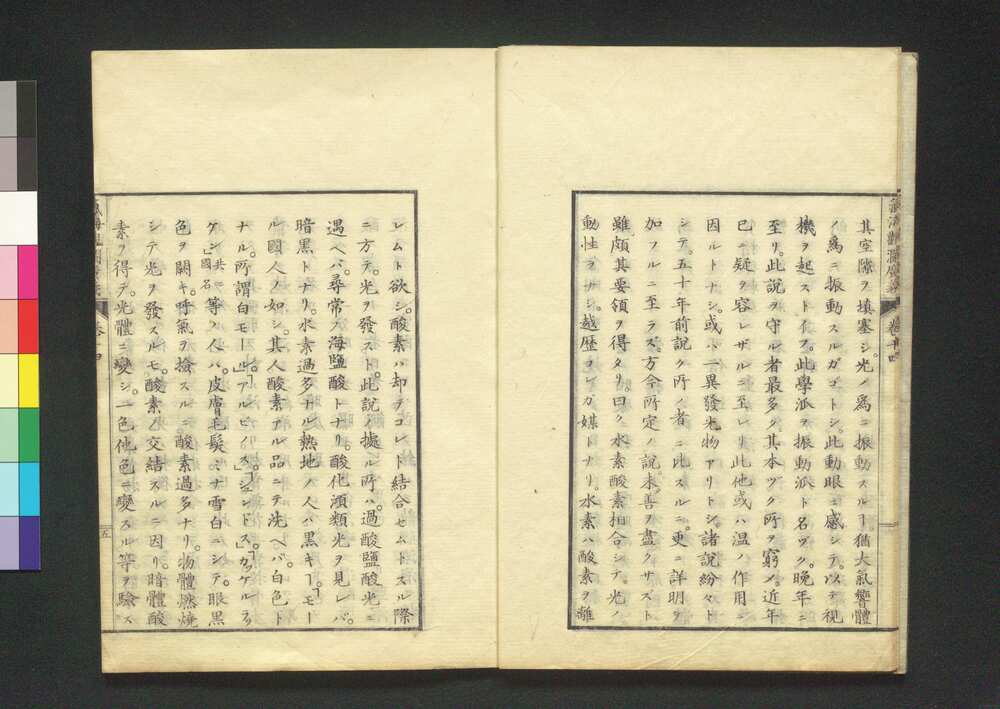 其空隙ヲ填塞シ。光ノ爲ニ振動スルヿ猶大氣響體
ノ爲ニ振動スルガゴトシ。此動眼ニ感シテ。以テ視
機ヲ起ストイフ。此學派ヲ振動派ト名ヅク。晩年ニ
至リ。此說ヲ守ル者最多ク。其本ヅク所ヲ窮メ。近年
已ニ疑ヲ容レザルニ至レリ。此他或ハ溫ノ作用ニ
因ルトナシ。或ハ一異發光物アリトシ。諸說紛々ト
シテ。五十年前說ク所ノ者ニ比スルニ。更ニ詳明ヲ
加フルニ至ラズ。方今所定ノ說。未善ヲ盡クサスト
雖。頗其要領ヲ得タリ。曰ク。水素酸素相合シテ。光ノ
動性ヲナシ。越歴ヲレガ媒トナリ。水素ハ酸素ヲ離
レムト欲シ。酸素ハ却テコレト結合セムトスル際
ニ方テ。光ヲ發スト。此說ノ據ル所ハ。過酸鹽酸光ニ
遇ヘバ。尋常ノ海鹽酸トナリ。酸化澒類光ヲ見レバ。
暗黑トナリ。水素過多ナル熱地ノ人ハ黑キヿ。モー
ル國人ノ如シ。其人酸素アル品ニテ洗ヘバ。白色ト
ナル。所謂白モール。アルビノス」。ドンドス」。カケルラ
ケン」共ニ國名等ノ人ハ。皮膚毛髮ミナ雪白ニシテ。眼黑
色ヲ闕キ。呼氣ヲ撿スルニ酸素過多ナリ。物體燃燒
シテ光ヲ發スルモ。酸素ノ交結スルニ因リ。暗體酸
素ヲ得テ。光體ニ變シ。一色他色ニ變スル等ヲ驗ス
卷十四
五